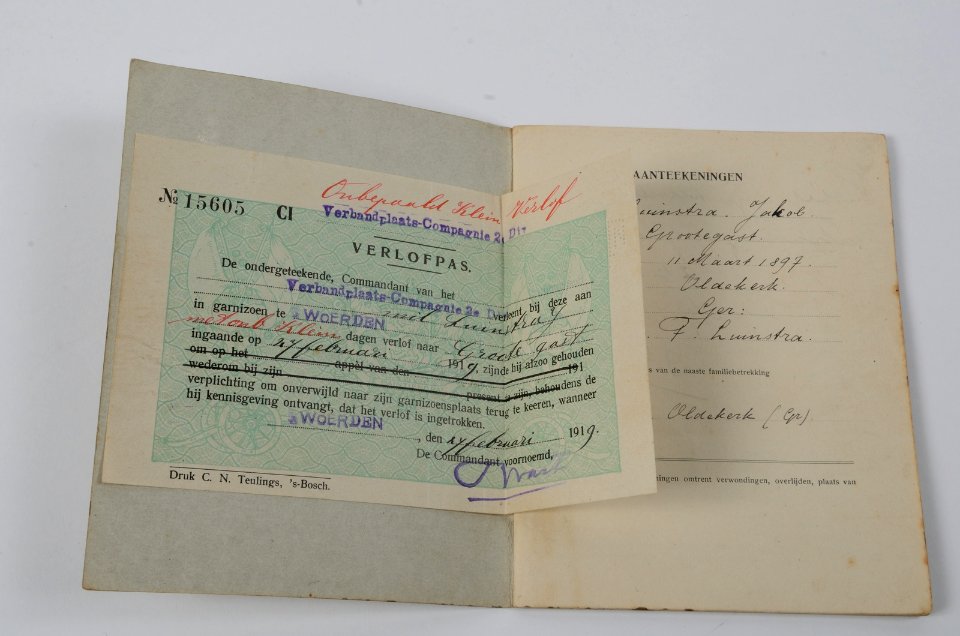 Onbepaald Klein Verlof
№ 15605 CI
Verbandplaats-Compagnie 2e Di
VERLOFPAS.
De ondergeteekende, Commandant van het
Verbandplaats-Compagnie 2e D verleent bij deze aan
in garnizoen te WOERDEN mil Luinstra J
met onb Klein dagen verlof naar Groote gast
ingaande op 27 februari 1919, zijnde hij alzoo gehouden
om op het appèl van den 191
wederom bij zijn present te zijn, behoudens de
verplichting om onverwijld naar zijn garnizoensplaats terug te keeren, wanneer
hij kennisgeving ontvangt, dat het verlof is ingetrokken.
WOERDEN, den 27 februari 1919.
De Commandant voornoemd,
Druk C. N. Teulings, 's-Bosch.
AANTEEKENINGEN
Luinstra. Jakob
Grootegast.
11 Maart 1897.
Oldekerk.
Ger:
F. Luinstra.
es van de naaste familiebetrekking
Oldekerk (Gr).
ningen omtrent verwondingen, overlijden, plaats van